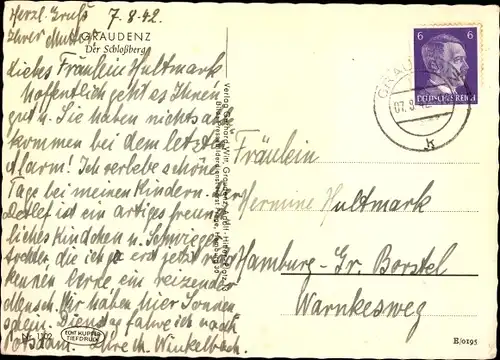 Herzl. Gruß 7.8.42.
Ihrer Mutter
GRAUDENZ
Der Schloßberg
Liebes Fräulein Hultmark
hoffentlich geht es Ihnen
gut u. Sie haben nichts ab
kommen bei dem letzten
Alarm! Ich verlebe schöne
Tage bei meinen Kindern.
Detlef ist ein artiges freund
liches Kindchen u. Schwieger
tochter, die ich ja erst jetzt
kennen lerne, ein reizender
Mensch. Wir haben hier Sonnen
schein. Dienstag fahre ich nach
Potsdam. Ihre Winkelbach.
Verlag Gerhard Witt, Graudenz, Adolf-Hitler-
6 6
DEUTSCHES REICH
GRAUDENZ
07.8.42
k
Fräulein
Hermine Hultmark
Hamburg-Gr. Borstel
Warnkesweg
ECHT KUPFER
TIEFDRUCK
E/0195